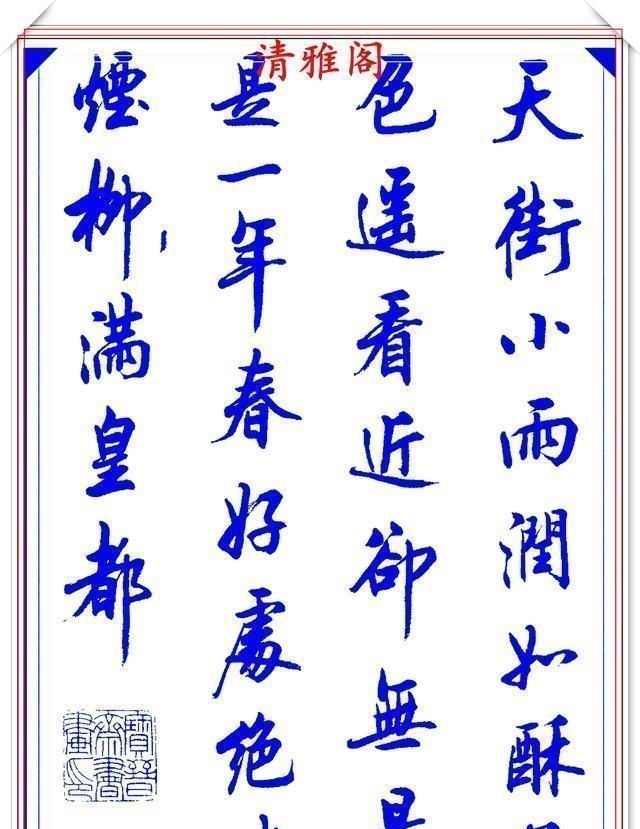 清雅阁
天街小雨潤如酥
色遥看近卻無
是一年春好處绝
煙柳满皇都